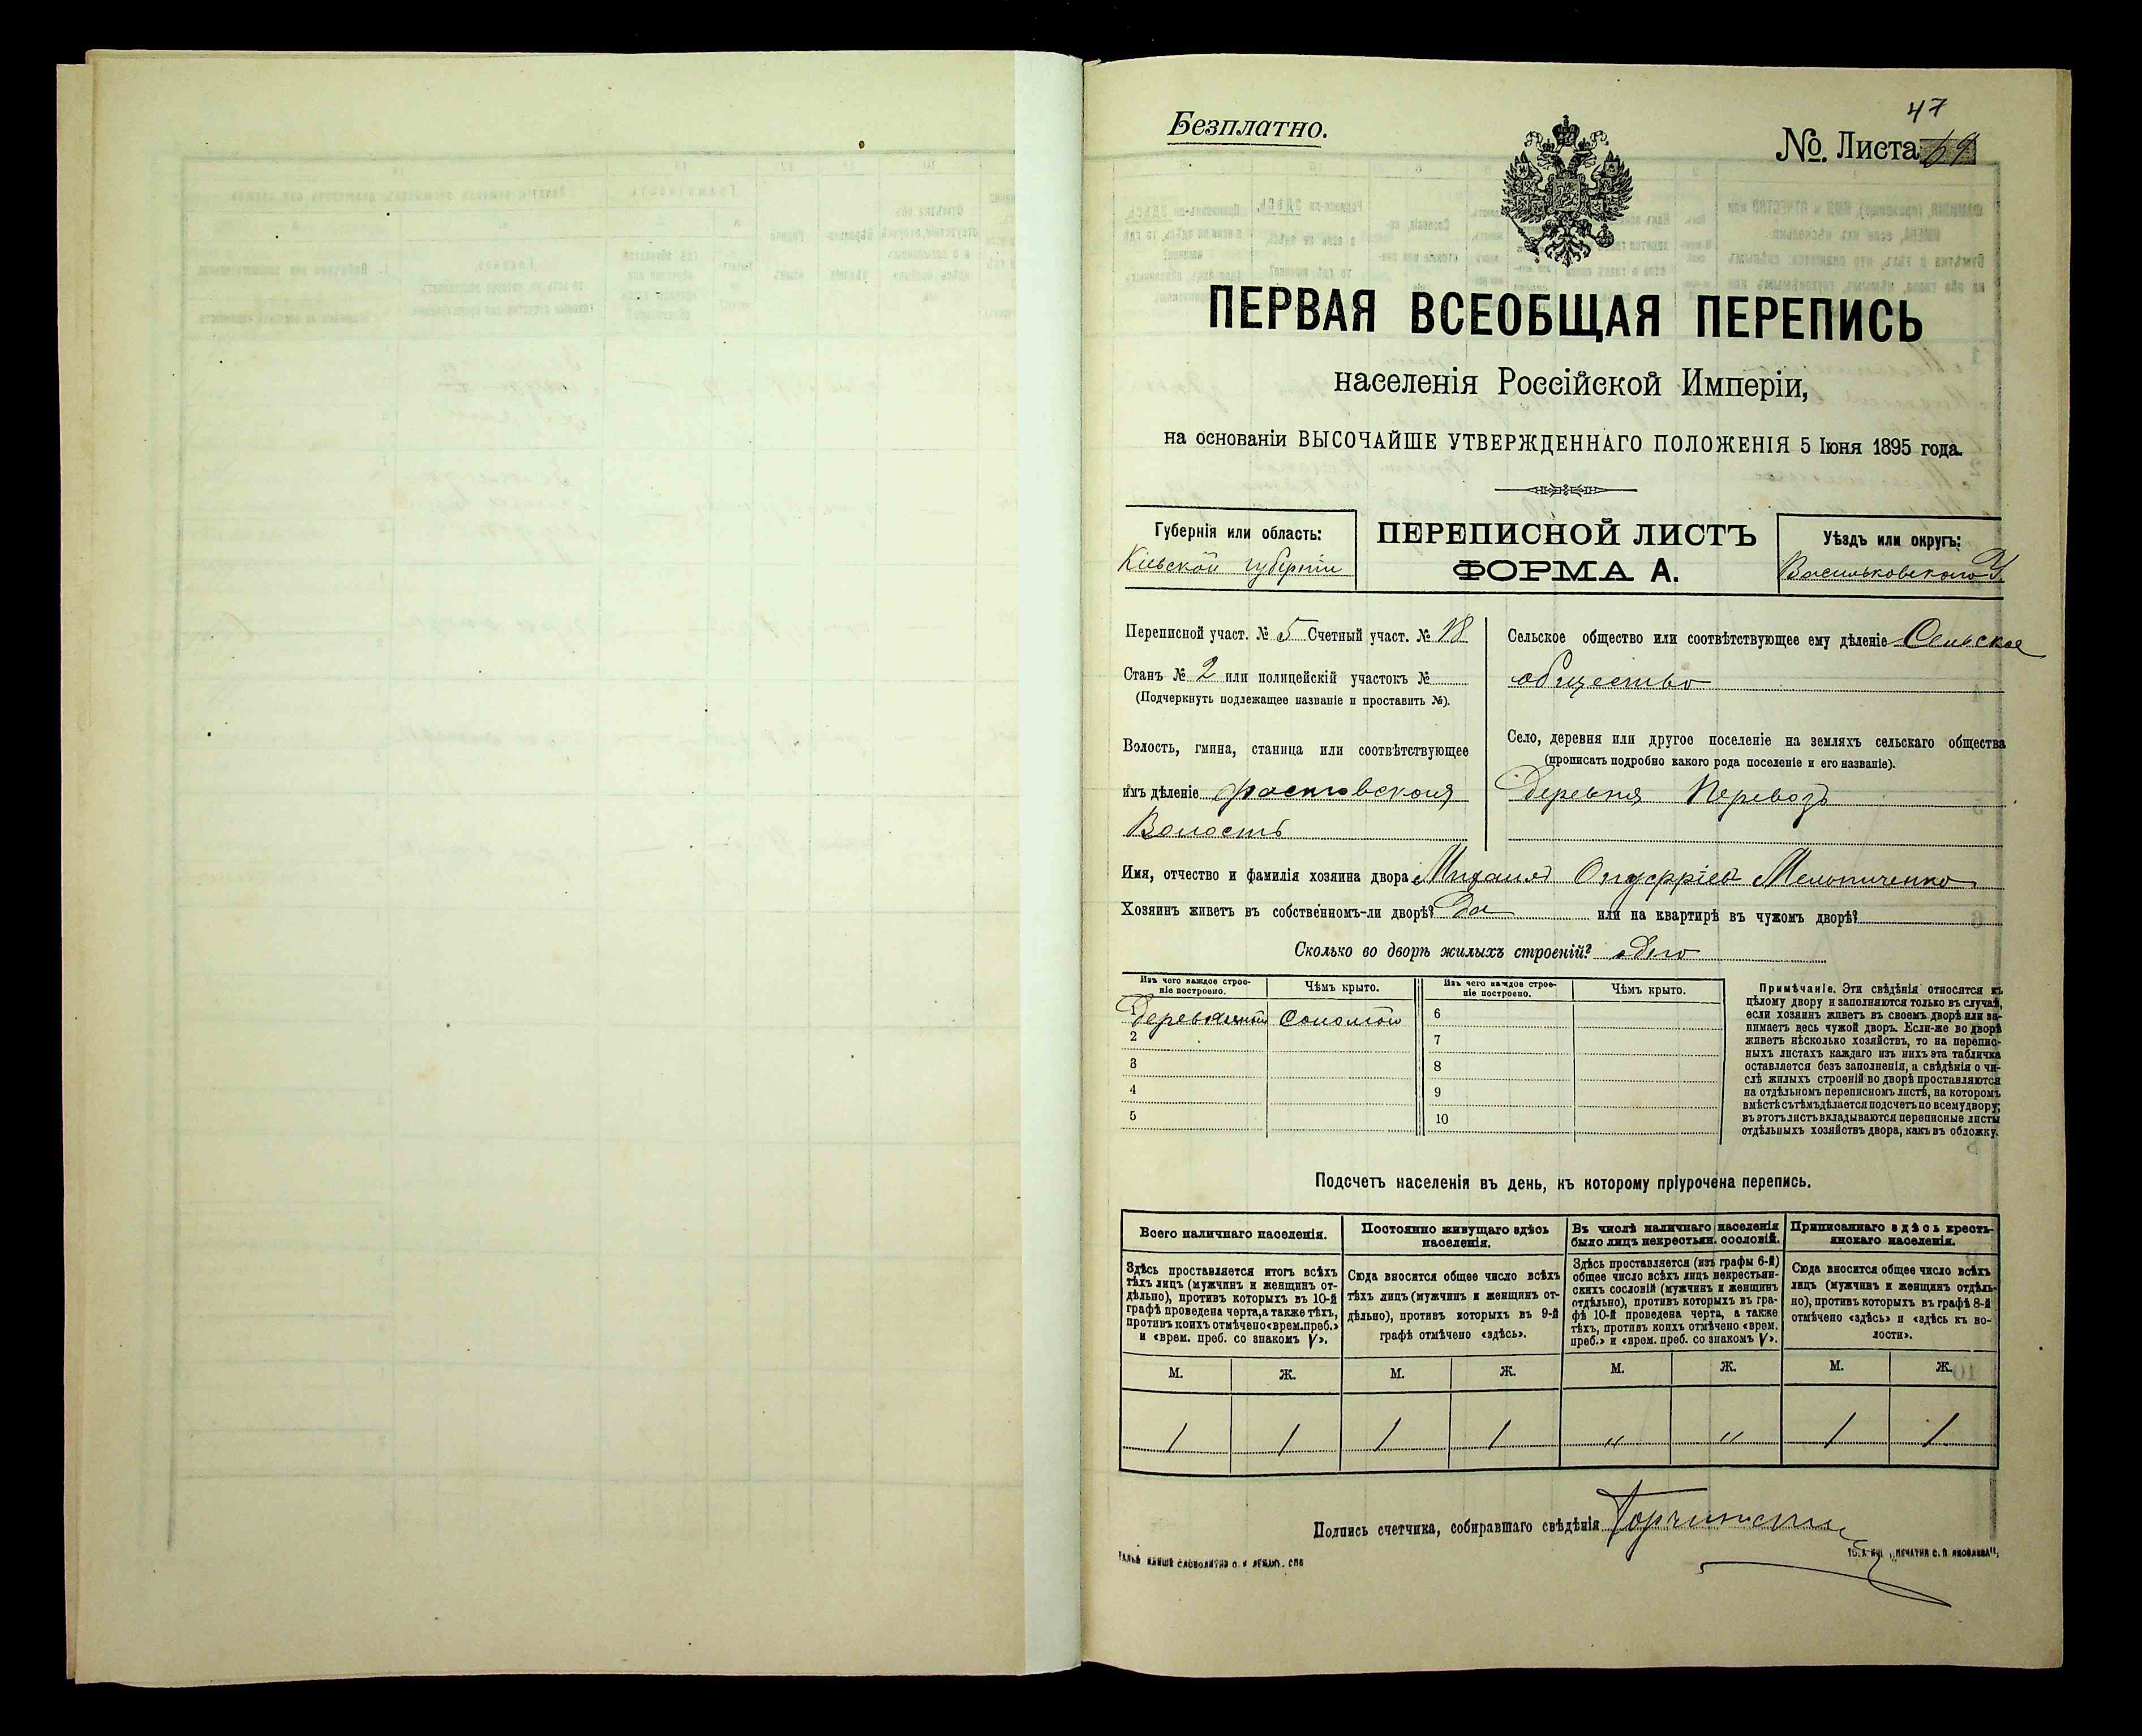 Безплатно.
47
№. Листа 69
ПЕРВАЯ ВСЕОБЩАЯ ПЕРЕПИСЬ
населенія Россійской Имперіи,
на основаніи ВЫСОЧАЙШЕ УТВЕРЖДЕННАГО ПОЛОЖЕНІЯ 5 Іюня 1895 года.
Губернія или область:
Кіевской губерніи
ПЕРЕПИСНОЙ ЛИСТЪ
ФОРМА А.
Уѣздъ или округъ:
Васильковскаго У.
Переписной участ. № 5 Счетный участ. № 18
Станъ № 2 или полицейскій участокъ №
(Подчеркнуть подлежащее названіе и проставить №).
Волость, гмина, станица или соотвѣтствующее
имъ дѣленіе Фастовская
Волость
Сельское общество или соотвѣтствующее ему дѣленіе Сельское
общество
Село, деревня или другое поселеніе на земляхъ сельскаго общества
(прописать подробно какого рода поселеніе и его названіе).
Деревня Перевозъ
Имя, отчество и фамилія хозяина двора Михаилъ Онуфріевъ Мельниченко
Хозяинъ живетъ въ собственномъ-ли дворѣ? Да или на квартирѣ въ чужомъ дворѣ?
Сколько во дворѣ жилыхъ строеній? одно
Изъ чего каждое строе-
ніе построено.
Чѣмъ крыто.
Изъ чего каждое строе-
ніе построено.
Чѣмъ крыто.
1 Деревянный Соломою
2
3
4
5
6
7
8
9
10
Примѣчаніе. Эти свѣдѣнія относятся къ
цѣлому двору и заполняются только въ случаѣ,
если хозяинъ живетъ въ своемъ дворѣ или за-
нимаетъ весь чужой дворъ. Если-же во дворѣ
живетъ нѣсколько хозяйствъ, то на перепис-
ныхъ листахъ каждаго изъ нихъ эта табличка
оставляется безъ заполненія, а свѣдѣнія о чи-
слѣ жилыхъ строеній во дворѣ проставляются
на отдѣльномъ переписномъ листѣ, на которомъ
вмѣстѣ съ тѣмъ дѣлается подсчетъ по всему двору;
въ этотъ листъ вкладываются переписные листы
отдѣльныхъ хозяйствъ двора, какъ въ обложку.
Подсчетъ населенія въ день, къ которому пріурочена перепись.
Всего наличнаго населенія.
Постоянно живущаго здѣсь
населенія.
Въ числѣ наличнаго населенія
было лицъ некрестьян. сословій.
Приписаннаго здѣсь кресть-
янскаго населенія.
Здѣсь проставляется итогъ всѣхъ
тѣхъ лицъ (мужчинъ и женщинъ от-
дѣльно), противъ которыхъ въ 10-й
графѣ проведена черта, а также тѣхъ,
противъ коихъ отмѣчено «врем. преб.»
и «врем. преб. со знакомъ V».
Сюда вносится общее число всѣхъ
тѣхъ лицъ (мужчинъ и женщинъ от-
дѣльно), противъ которыхъ въ 9-й
графѣ отмѣчено «здѣсь».
Здѣсь проставляется (изъ графы 6-й)
общее число всѣхъ лицъ некрестьян-
скихъ сословій (мужчинъ и женщинъ
отдѣльно), противъ которыхъ въ гра-
фѣ 10-й проведена черта, а также
тѣхъ, противъ коихъ отмѣчено «врем.
преб.» и «врем. преб. со знакомъ V».
Сюда вносится общее число всѣхъ
лицъ (мужчинъ и женщинъ отдѣль-
но), противъ которыхъ въ графѣ 8-й
отмѣчено «здѣсь» и «здѣсь къ во-
лости».
М. Ж. М. Ж. М. Ж. М. Ж.
1 1 1 1 " " 1 1
Подпись счетчика, собиравшаго свѣдѣнія